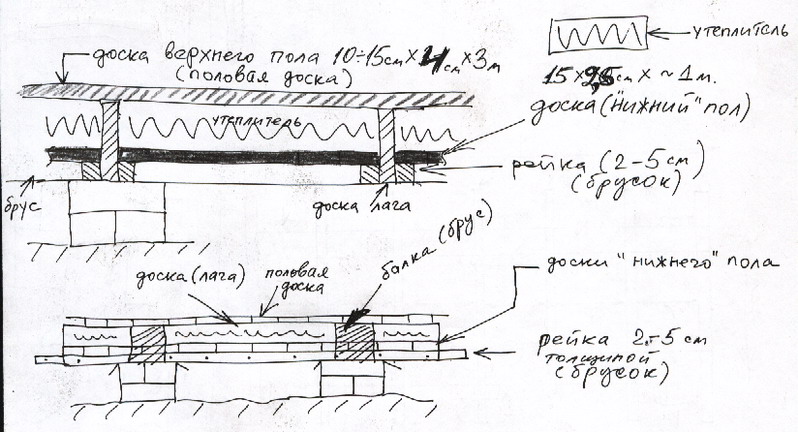 доска верхнего пола 10÷15см×4см×3м
(половая доска)
утеплитель
15×2,5см×~1м.
утеплитель
доска("нижний" пол)
рейка (2-5 см)
(брусок)
брус
доска лага
балка (брус)
доска(лага)
половая
доска
доски "нижнего" пола
рейка 2÷5 см
толщиной
(брусок)